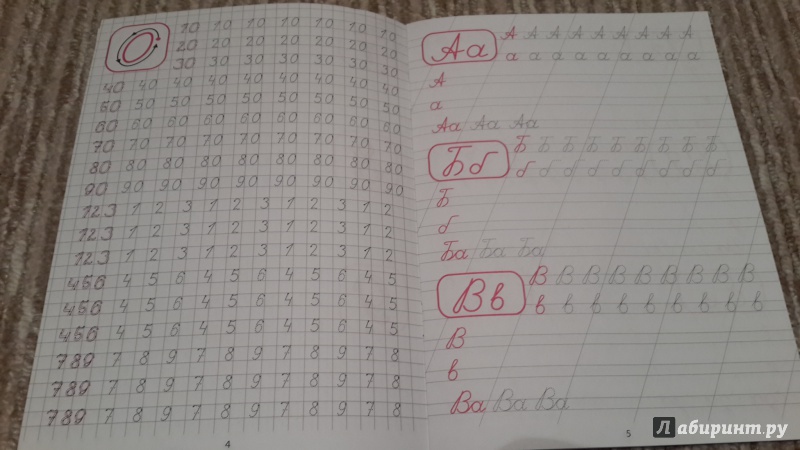 0
10 10 10 10 10 10 10
20 20 20 20 20 20 20
30 30 30 30 30 30 30
40 40 40 40 40 40 40 40 40
50 50 50 50 50 50 50 50 50
60 60 60 60 60 60 60 60 60
70 70 70 70 70 70 70 70 70
80 80 80 80 80 80 80 80 80
90 90 90 90 90 90 90 90 90
123 1 2 3 1 2 3 1 2 3 1 2
123 1 2 3 1 2 3 1 2 3 1 2
123 1 2 3 1 2 3 1 2 3 1 2
456 4 5 6 4 5 6 4 5 6 4 5
456 4 5 6 4 5 6 4 5 6 4 5
456 4 5 6 4 5 6 4 5 6 4 5
789 7 8 9 7 8 9 7 8 9 7 8
789 7 8 9 7 8 9 7 8 9 7 8
789 7 8 9 7 8 9 7 8 9 7 8
4
Аа
А А А А А А А А
а а а а а а а а
А
а
Аа Аа Аа
Бб
Б Б Б Б Б Б Б Б
б б б б б б б б
Б
б
Ба Ба Ба
Вв
В В В В В В В В В
в в в в в в в в в
В
в
Ва Ва Ва
5
Лабиринт.ру